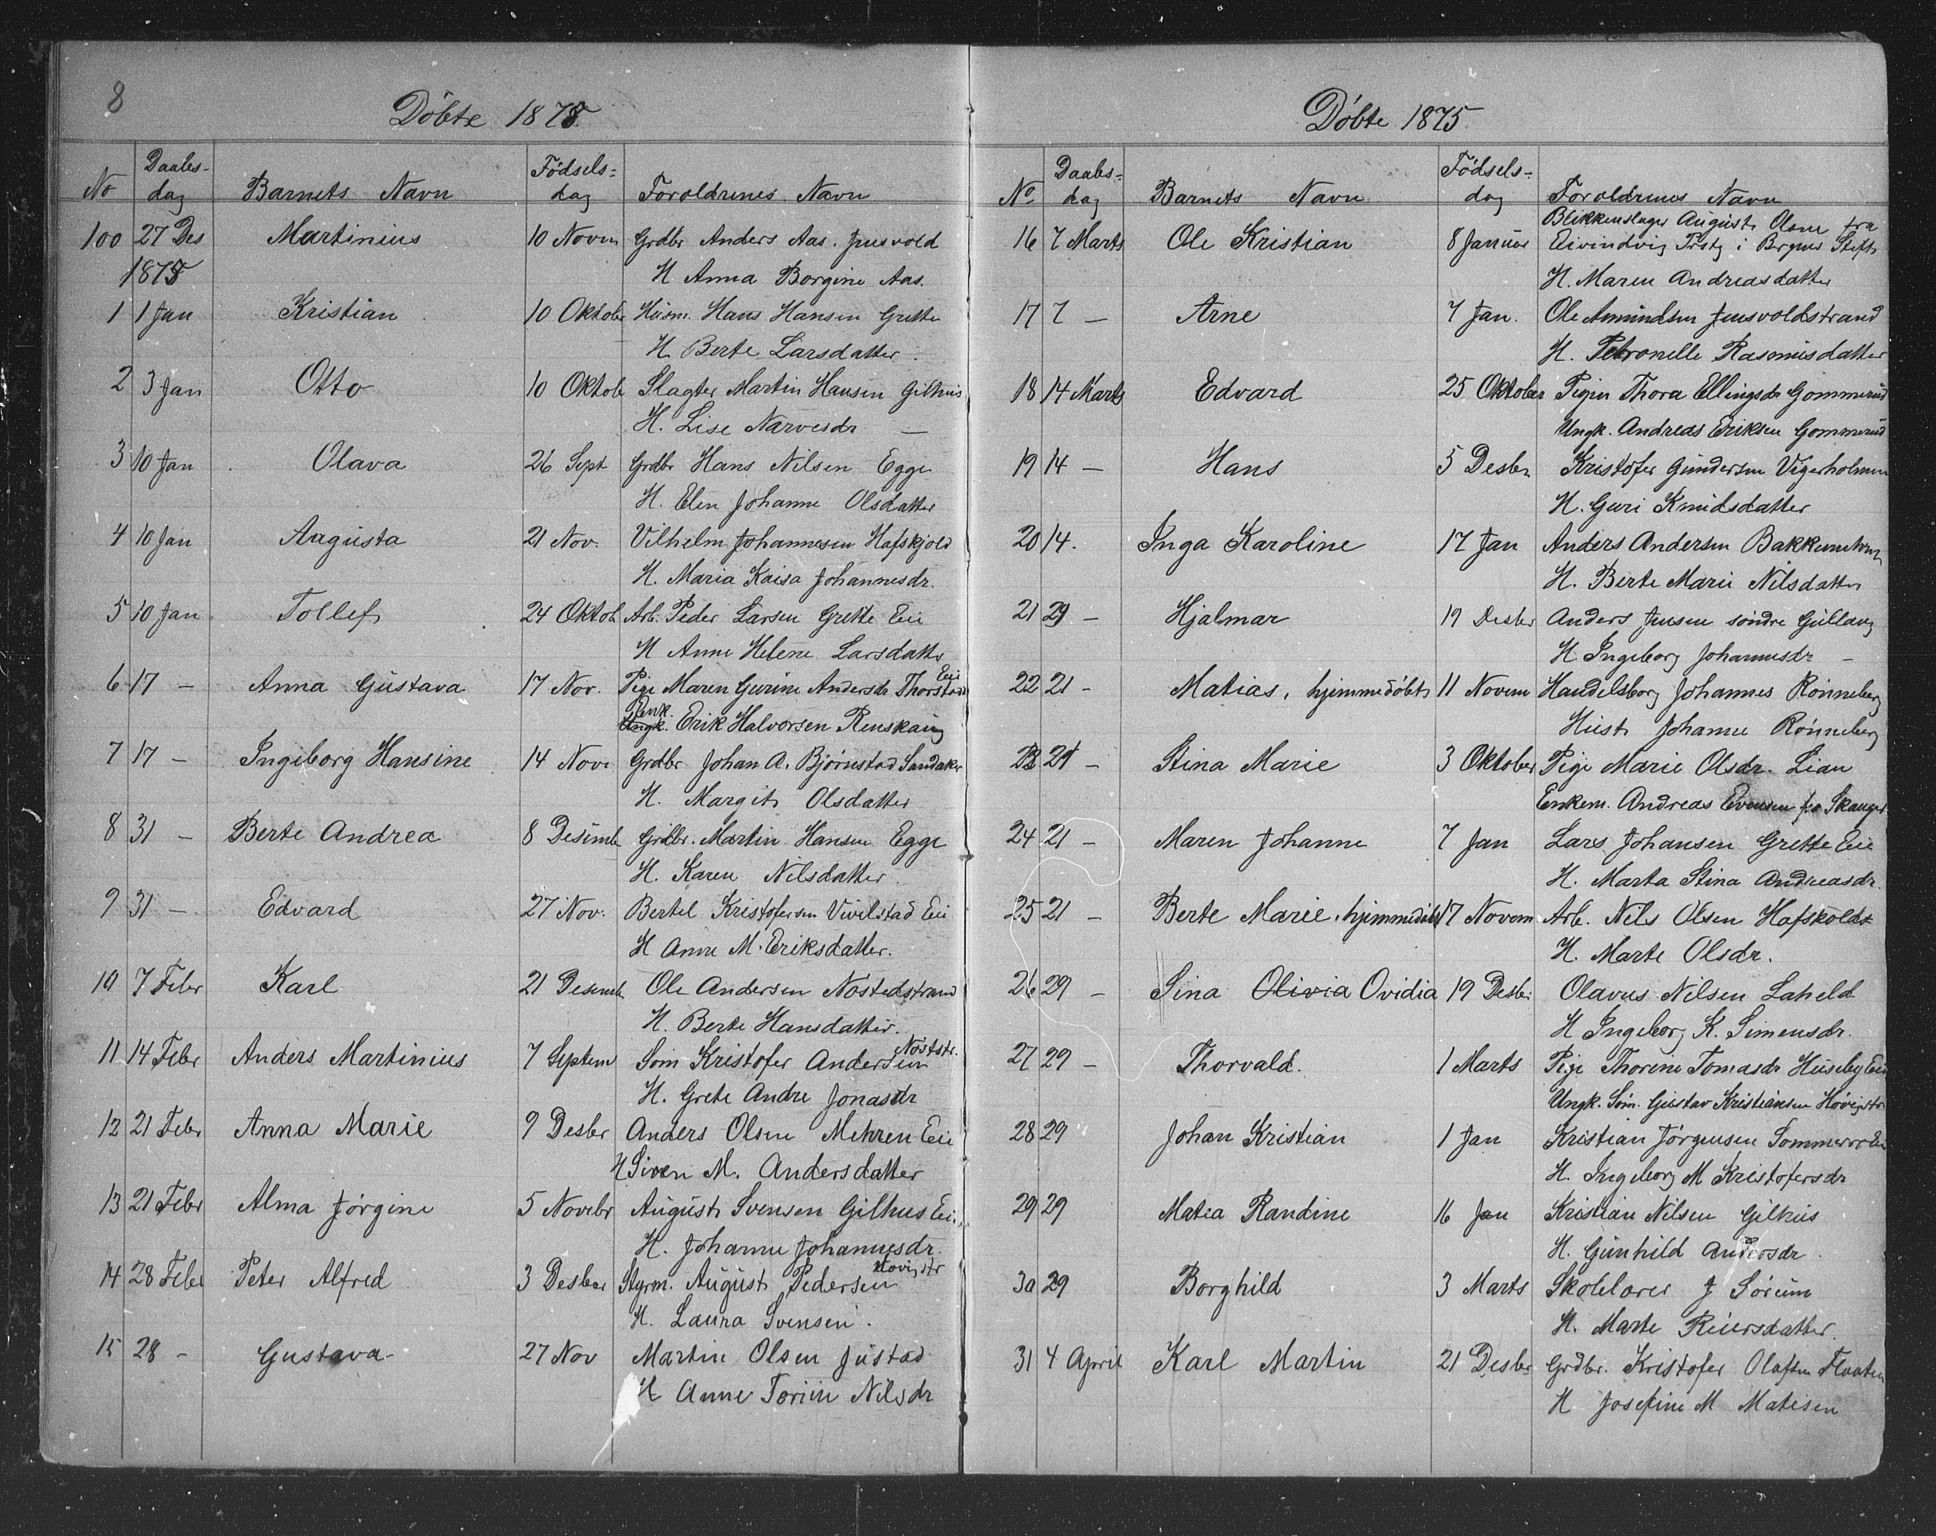 8
Döbte 1875
No Daabs- dag Barnets Navn Födsels- dag Foroldrenes Navn
100 27 Des Martinius 10 Novm Grdbr Anders Aas. Jusvold
1875 H Anna Borgine Aas.
1 1 Jan Kristian 10 Oktober Husm. Hans Hansen Grette
H. Berte Larsdatter.
2 3 Jan Otto 10 Oktob Slagter Martin Hansen Gilhus
H. Lise Narvesdr —
3 10 Jan Olava 26 Sept Grdbr Hans Nilsen Egge
H. Elen Johanne Olsdatter
4 10 Jan Augusta 21 Nov. Vilhelm Johannesen Hafskjold
H. Maria Kaisa Johannesdr.
5 10 Jan Tollef 24 Oktob Arb. Peder Larsen Grette Eie
H Anne Helene Larsdatter
6 17 — Anna Gustava 17 Nov. Pige Maren Gurine Andersdr Thorstad Eie
Enk. Ungk. Erik Halvorsen Renskaug
7 17 — Ingeborg Hansine 14 Nov. Grdbr Johan A. Bjørnstad Sandaker
H. Margit Olsdatter
8 31 — Berte Andrea 8 Desemb Grdbr. Martin Hansen Egge
H. Karen Nilsdatter.
9 31 — Edvard 27 Nov. Bertel Kristofersen Vivilstad Eie
H Anne M. Eriksdatter.
10 7 Febr Karl 21 Desemb Ole Andersen Nöstedstrand
H. Berte Hansdatter.
11 14 Febr Anders Martinius 7 Septem Söm Kristofer Andersen Nöststr.
H. Grete Andre Jonasdr
12 21 Febr Anna Marie 9 Desbr Anders Olsen Mehren Eie
H Siven M. Andersdatter
13 21 Febr Alma Jørgine 5 Novebr August Svensen Gilhus Eie
H. Johanne Johannesdr.
14 28 Febr Peter Alfred 3 Desber Styrm. August Pedersen Hövigstr
H. Laura Svensen.
15 28 - Gustava 27 Nov Martin Olsen Justad
H Anne Torine Nilsdr
Döbte 1875.
No. Daabs- dag Barnets Navn Födsels- dag Foroldrenes Navn
16 7 Marts Ole Kristian 8 Januar Blikkenslager August Olsen fra
Eivindvig Pstg i Brgns Stift
H. Maren Andreasdatter
17 7 — Arne 7 Jan. Ole Amundsen Jusvoldstrand
H. Petronelle Rasmusdatter
18 14 Marts Edvard 25 Oktober Pigen Thora Ellingsdr Gommerud
Ungk. Andreas Eriksen Gommerud
19 14 — Hans 5 Desbr Kristofer Gundersen Vigerholmen
H. Guri Knudsdatter
20 14. Inga Karoline 17 Jan Anders Andersen
H. Berte Marie Nilsdatter
21 29 — Hjalmar 19 Desbr Anders Jensen söndre Gullaug
H. Ingeborg Johannesdr —
22 21 - Matias, hjemmedöbt 11 Novem Handelsborg Johannes Rönneberg
Hust Johanne Rönneberg
23 21 — Stina Marie 3 Oktober Pige Marie Olsdr. Lian
Enkem. Andreas Evensen fra Skauger
24 21 — Maren Johanne 7 Jan Lars Johansen Grette Eie
H. Marta Stina Andreasdr.
25 21 — Berte Marie, hjemmedöbt 17 Novem Arb. Nils Olsen Hafskold
H. Marte Olsdr.
26 29 — Sina Olivia Ovidia 19 Desbr Olavus Nilsen Laheld
H Ingeborg K. Simensdr.
27 29 — Thorvald. 1 Marts Pige Thorine Tomasdr Huseby Eie
Ungk. Söm. Gustav Kristiansen Hövigstr
28 29 Johan Kristian 1 Jan Kristian Jörgensen Sommerro Eie
H. Ingeborg M Kristofersdr
29 29 Matea Randine 16 Jan Kristian Nilsen Gilhus
H. Gunhild Andersdr.
30 29 Borghild 3 Marts Skolelærer J Sörum
H. Marte Reiersdatter.
31 4 April Karl Martin 21 Desbr Grdbr. Kristofer Olafsen Flaaten
H Josefine M Matisen